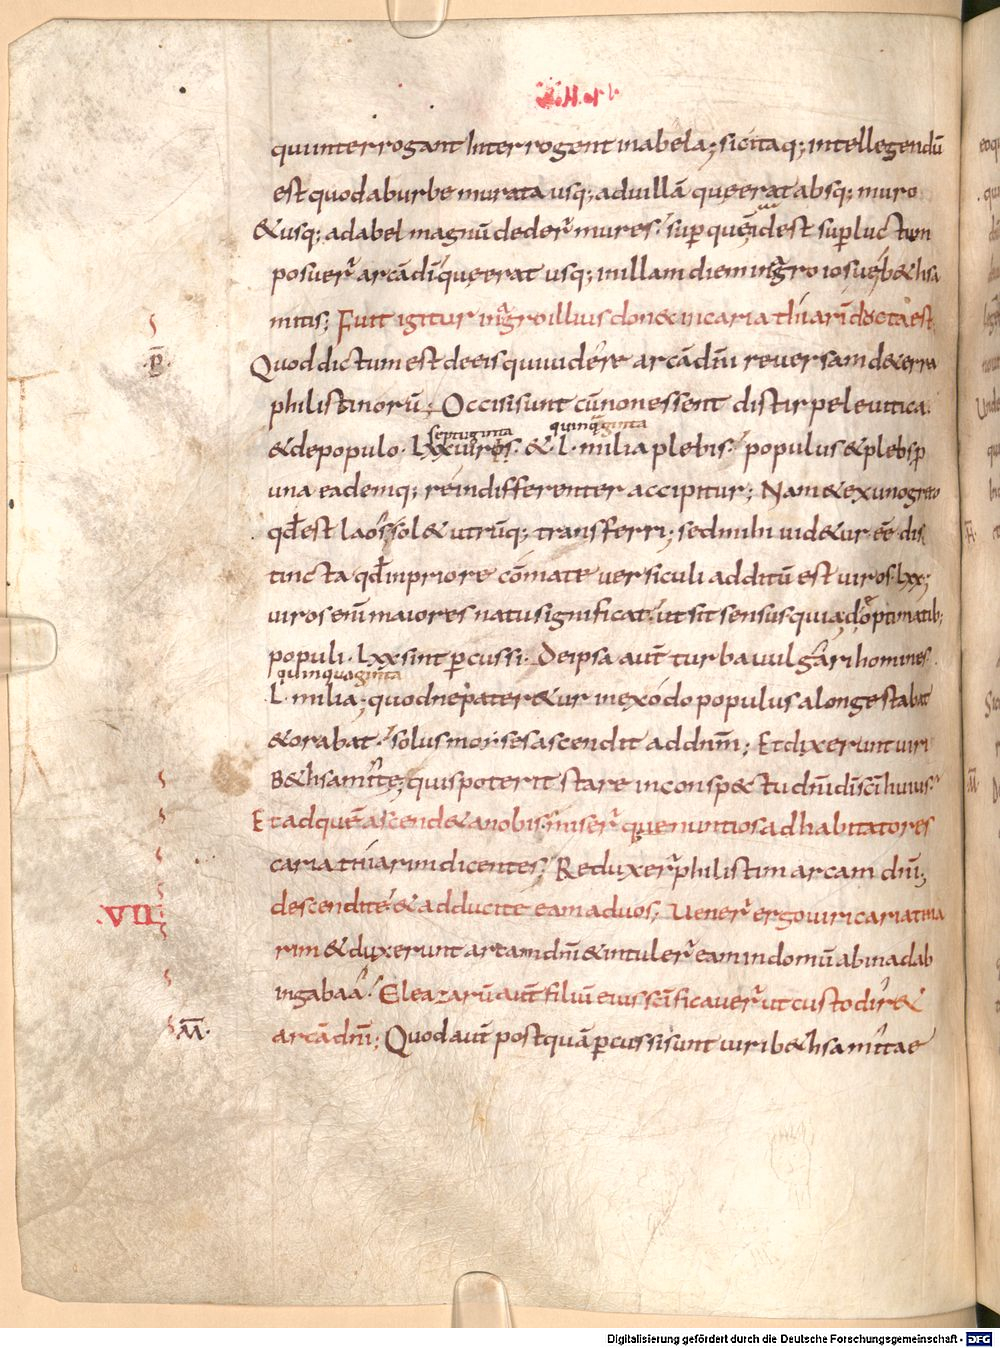 qui interrogant Interrogent inabela; sic itaq; intellegendū
est quod aburbe murata usq; aduillā que erat absq; muro
& usq; adabel magnū deder̄ mures. sup quē idest sup luctum
posuer̄ arcā dn̄i que erat usq; in illam diem in agro iosue b&hsa
mitis; Fuit igitur in agro illius donec in cariathiarī ducta est
Quod dictum est deeis qui uidere arcā dn̄i reuersam de terra
philistinorū; Occisi sunt cū non essent distirpe leuitica.
septuginta quinquaginta
& depopulo. Lxx uiros. & .L. milia plebis. populus & plebs p
una eademq; re indifferenter accipitur; Nam & ex uno greco
qd̄ est laos sol& utrūq; transferri; sed mihi uid&ur eē dis
tincta qd̄ in priore cōmate uersiculi additū est uiros. Lxx;
uiros enī maiores natu significat. ut sit sensus quia de optimatib;
populi. Lxx sint pcussi. De ipsa aut̄ turba uulgari homines.
quinquaginta
.L. milia; quod ne pater&ur in exodo populus alonge stabat
& orabat. solus moises ascendit ad dn̄m; Et dixerunt uiri
B&hsamite; quis poterit stare in consp&tu dn̄i dī scī huius.
Et ad quē ascend& a nobis. miser̄ que nuntios ad habitatores
cariathiarim dicentes; Reduxer̄ philistim arcam dn̄i;
.VII.
descendite & adducite eam ad uos; Uener̄ ergo uiri cariathia
rim & duxerunt arcam dn̄i & intuler̄ eam in domū abinadab
in gabaa. Eleazarū aut̄ filiū eius sc̄ificauer̄ ut custodir&
arcā dn̄i; Quod aut̄ postquā pcussi sunt uiri b&hsamitae
Digitalisierung gefördert durch die Deutsche Forschungsgemeinschaft - DFG